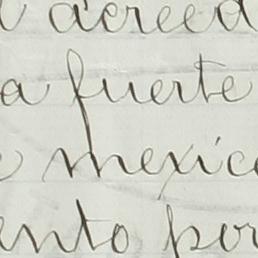 acreed
a fuerte
mexic
ento por